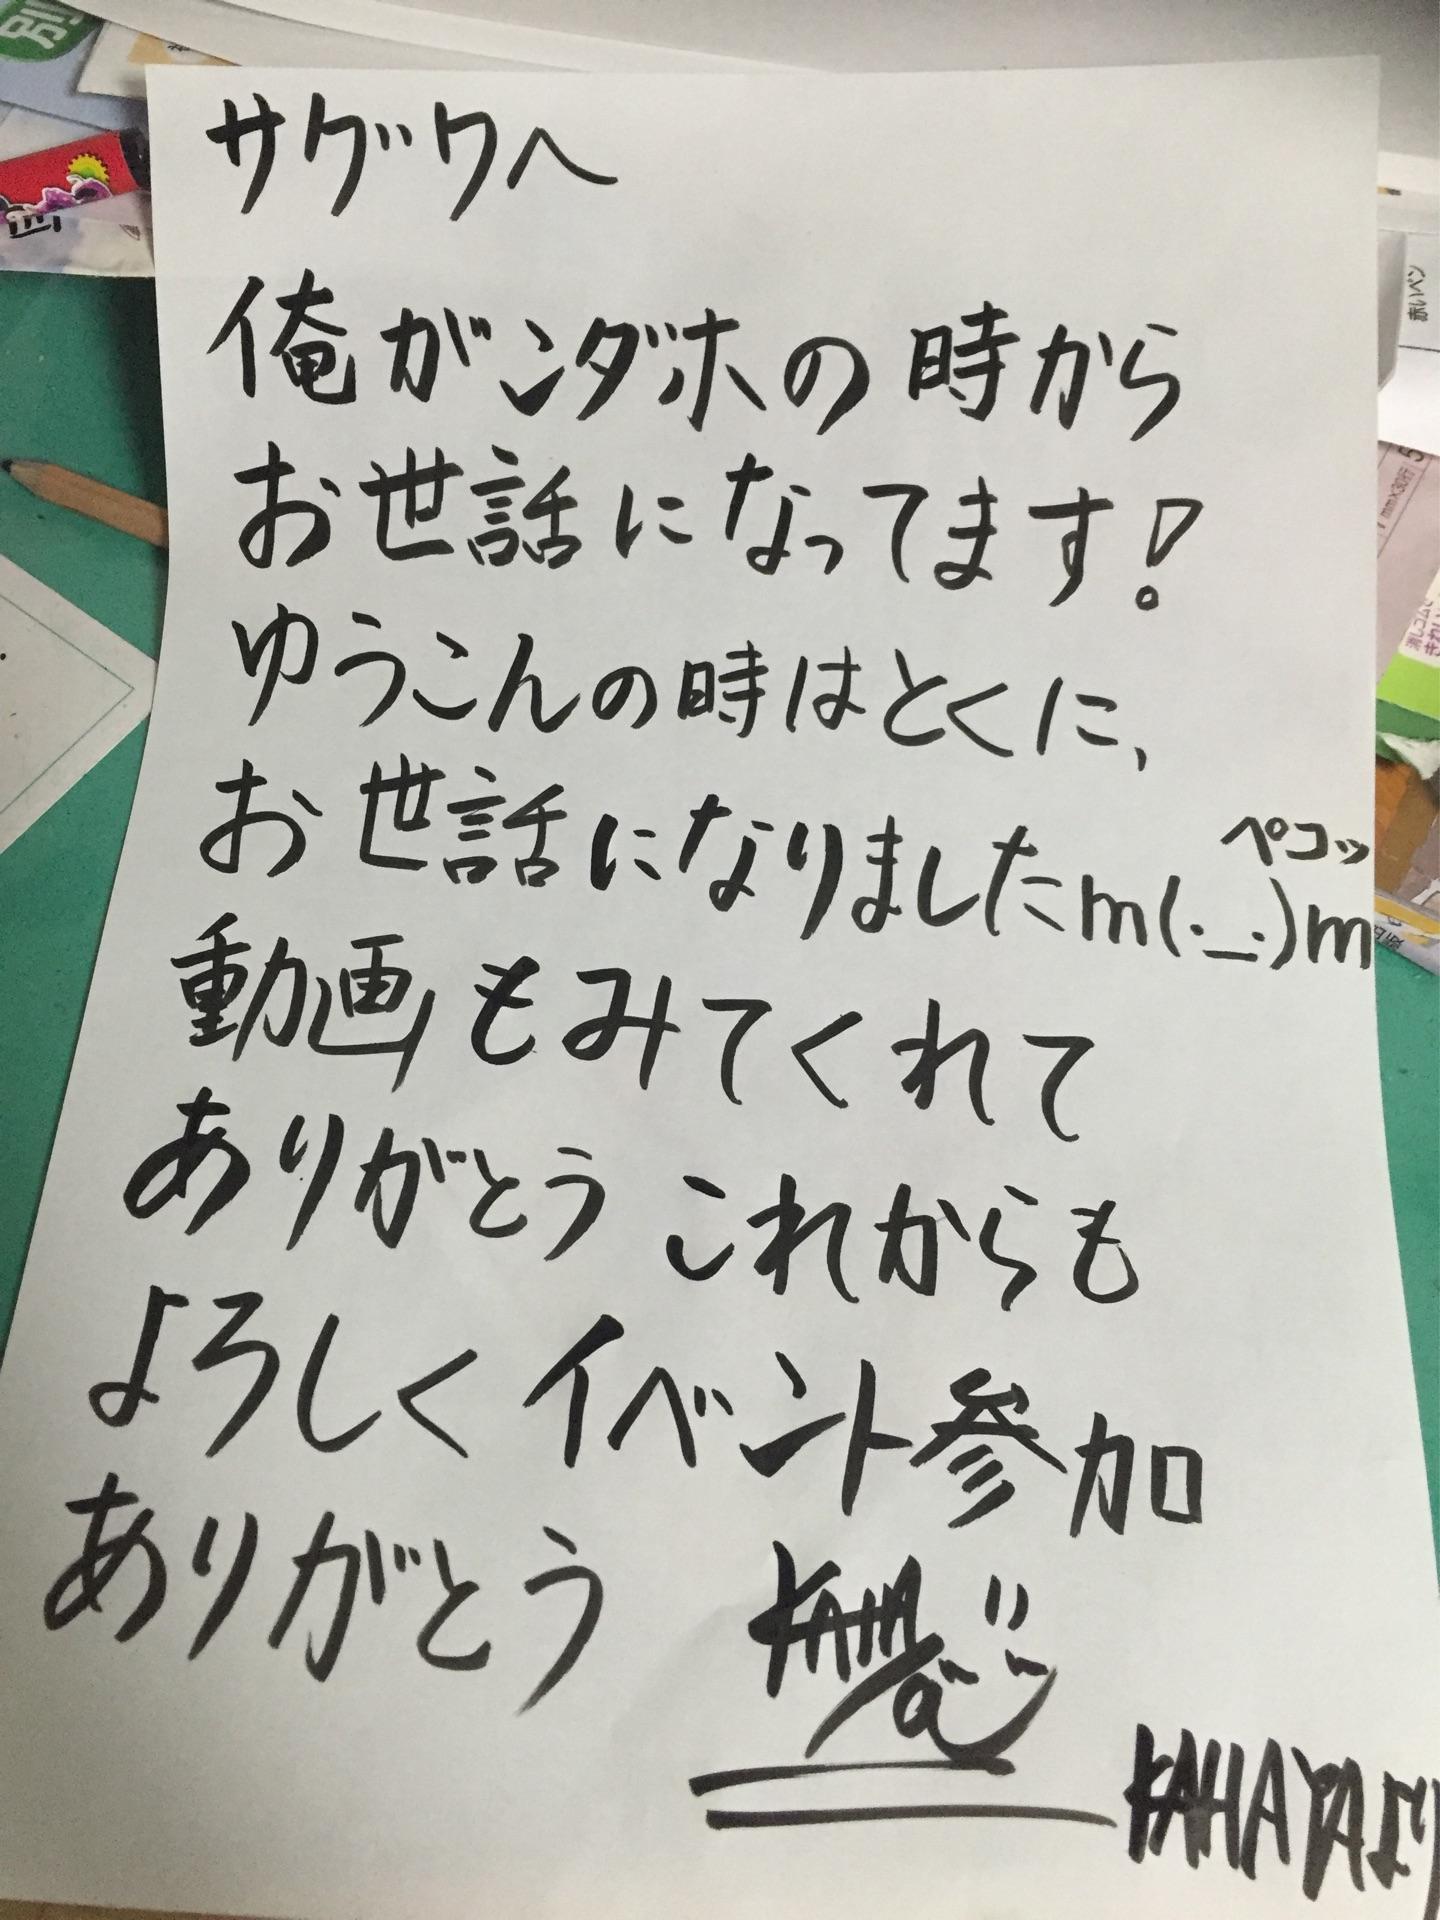 サグワへ
俺がンダホの時から
お世話になってます!
ゆうこんの時はとくに、
お世話になりましたm(._.)m
ペコッ
動画もみてくれて
ありがとう これからも
よろしく イベント参加
ありがとう
KAHAYAより
別
赤いペン